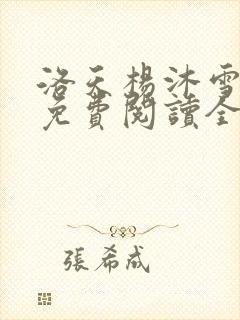 洛天楊沐雪
免費閱讀全
張希成